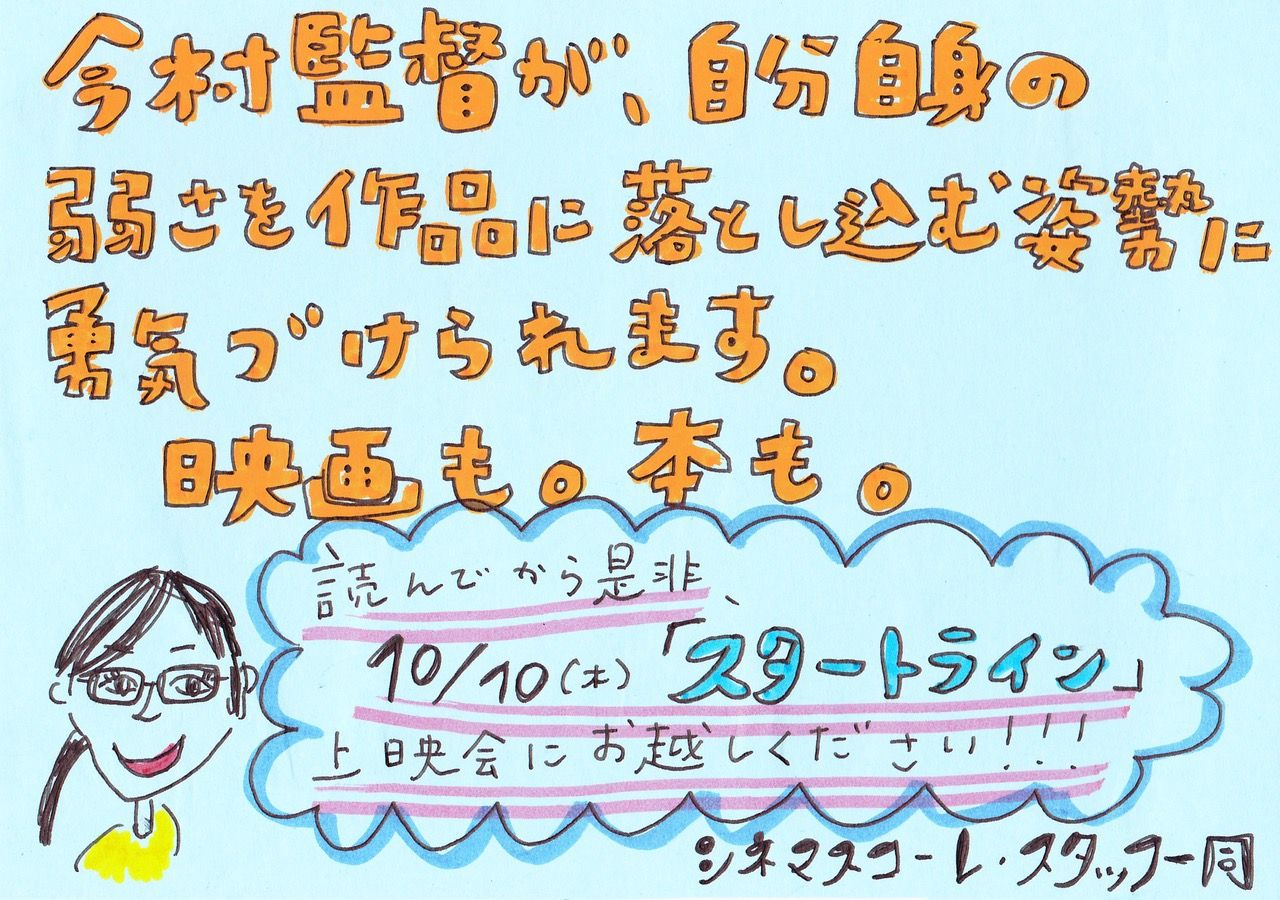 今村監督が、自分自身の
弱さを作品に落とし込む姿勢に
勇気づけられます。
映画も。本も。
読んでから是非、
10/10(木)「スタートライン」
上映会にお越しください!!!
シネマスコーレ・スタッフ一同